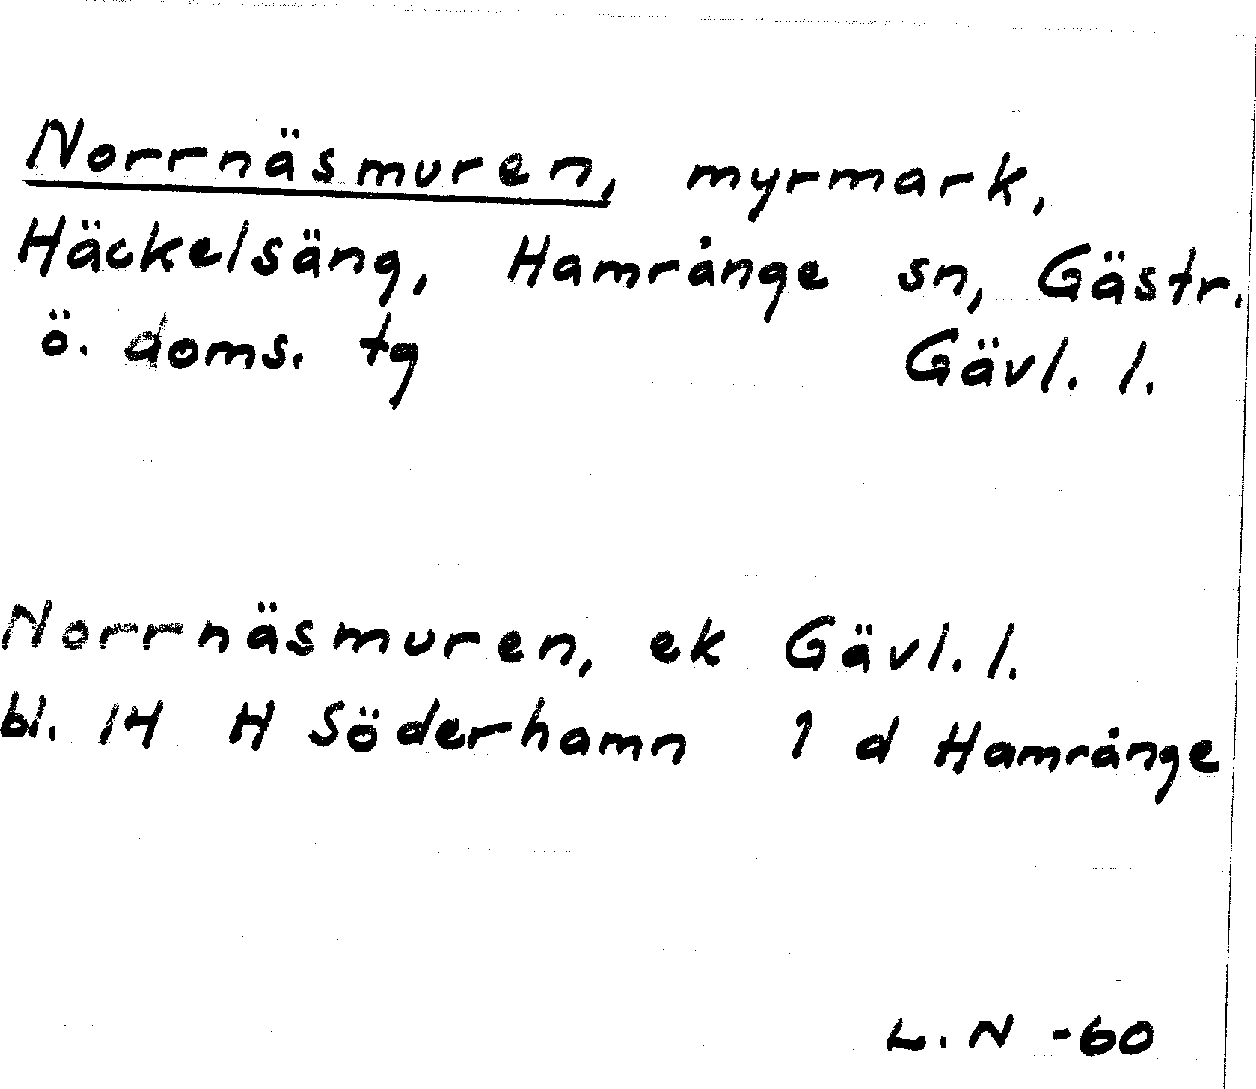 Norrnäsmuren, myrmark,
Häckelsäng, Hamrånge sn, Gästr.
ö. doms. tg Gävl. l.
Norrnäsmuren, ek Gävl. l.
bl. 14 H Söderhamn 1 d Hamrånge
L. N -60